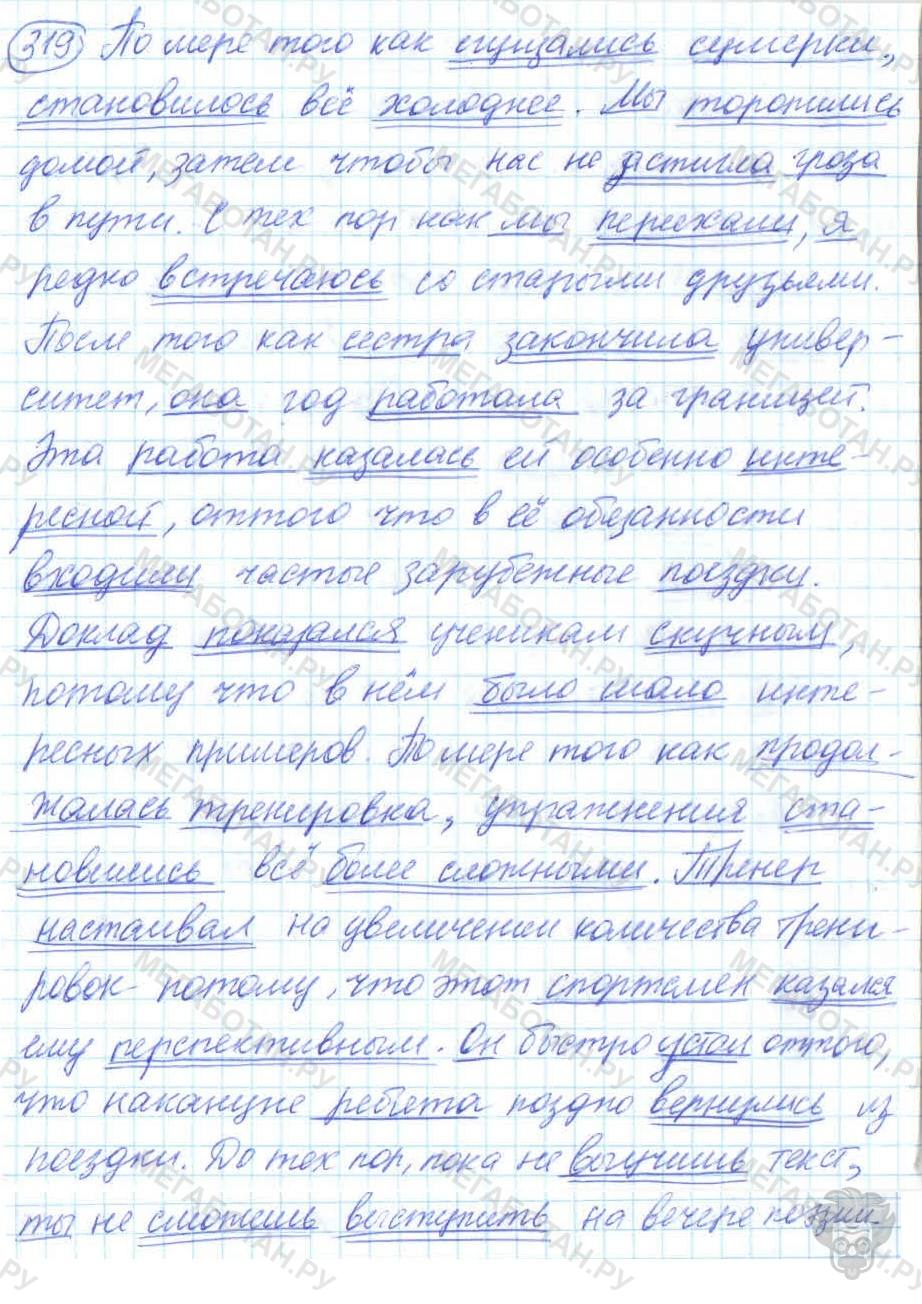 319 По мере того как сгущались сумерки,
становилось всё холоднее. Мы торопились
домой, затем чтобы нас не застигла гроза
в пути. С тех пор как мы переехали, я
редко встречаюсь со старыми друзьями.
После того как сестра закончила универ-
ситет, она год работала за границей.
Эта работа казалась ей особенно инте-
ресной, оттого что в её обязанности
входили частые зарубежные поездки.
Доклад показался ученикам скучным,
потому что в нём было мало инте-
ресных примеров. По мере того как продол-
жалась тренировка, упражнения ста-
новились всё более сложными. Тренер
настаивал на увеличении количества трени-
ровок потому, что этот спортсмен казался
ему перспективным. Он быстро устал оттого,
что накануне ребята поздно вернулись из
поездки. До тех пор, пока не выучишь текст,
ты не сможешь выступить на вечере поэзии.
МЕГАБОТАН.РУ